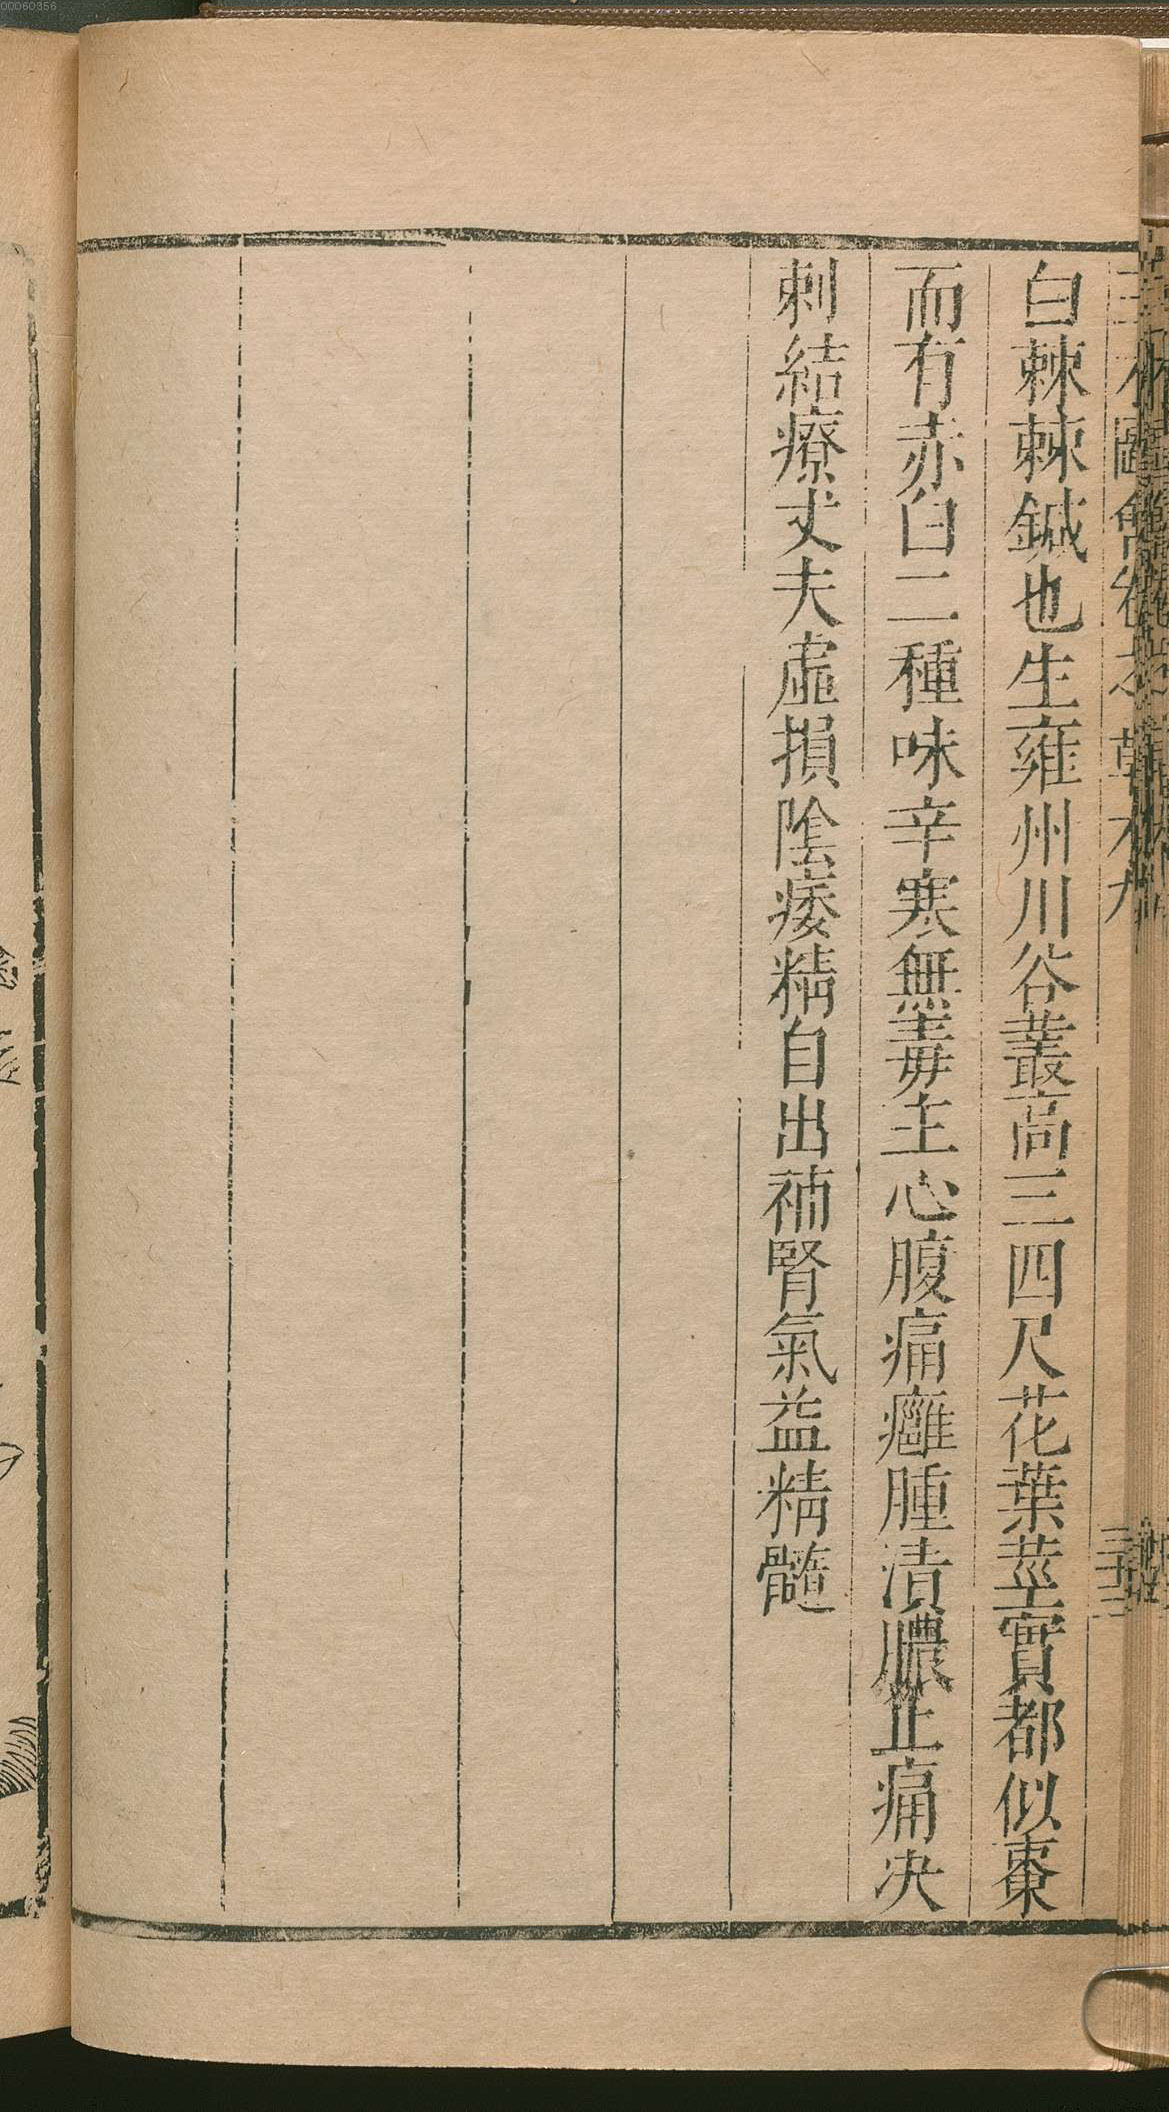 00060356
白棘棘鍼也生雍州川谷叢高三四尺花葉莖實都似棗
而有赤白二種味辛寒無毒主心腹痛癰腫漬膿止痛决
刺結療丈夫虛損陰痿精自出補腎氣益精髓